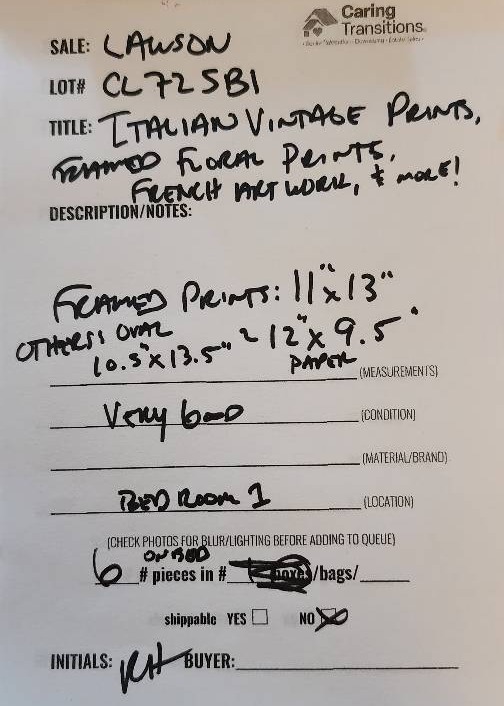 Caring
Transitions
SALE: LAWSON
LOT# CL725B1
TITLE: ITALIAN VINTAGE PRINTS,
FRAMED FLORAL PRINTS,
FRENCH ARTWORK, & MORE!
DESCRIPTION/NOTES:
FRAMED PRINTS: 11"x13"
OTHERS: OVAL
10.5"x13.5" ~ 12"x 9.5"
PAPER
(MEASUREMENTS)
Very Good (CONDITION)
(MATERIAL/BRAND)
BED ROOM 1 (LOCATION)
(CHECK PHOTOS FOR BLUR/LIGHTING BEFORE ADDING TO QUEUE)
ON BED
6 # pieces in # boxes/bags/
shippable YES NO
INITIALS: RH BUYER: